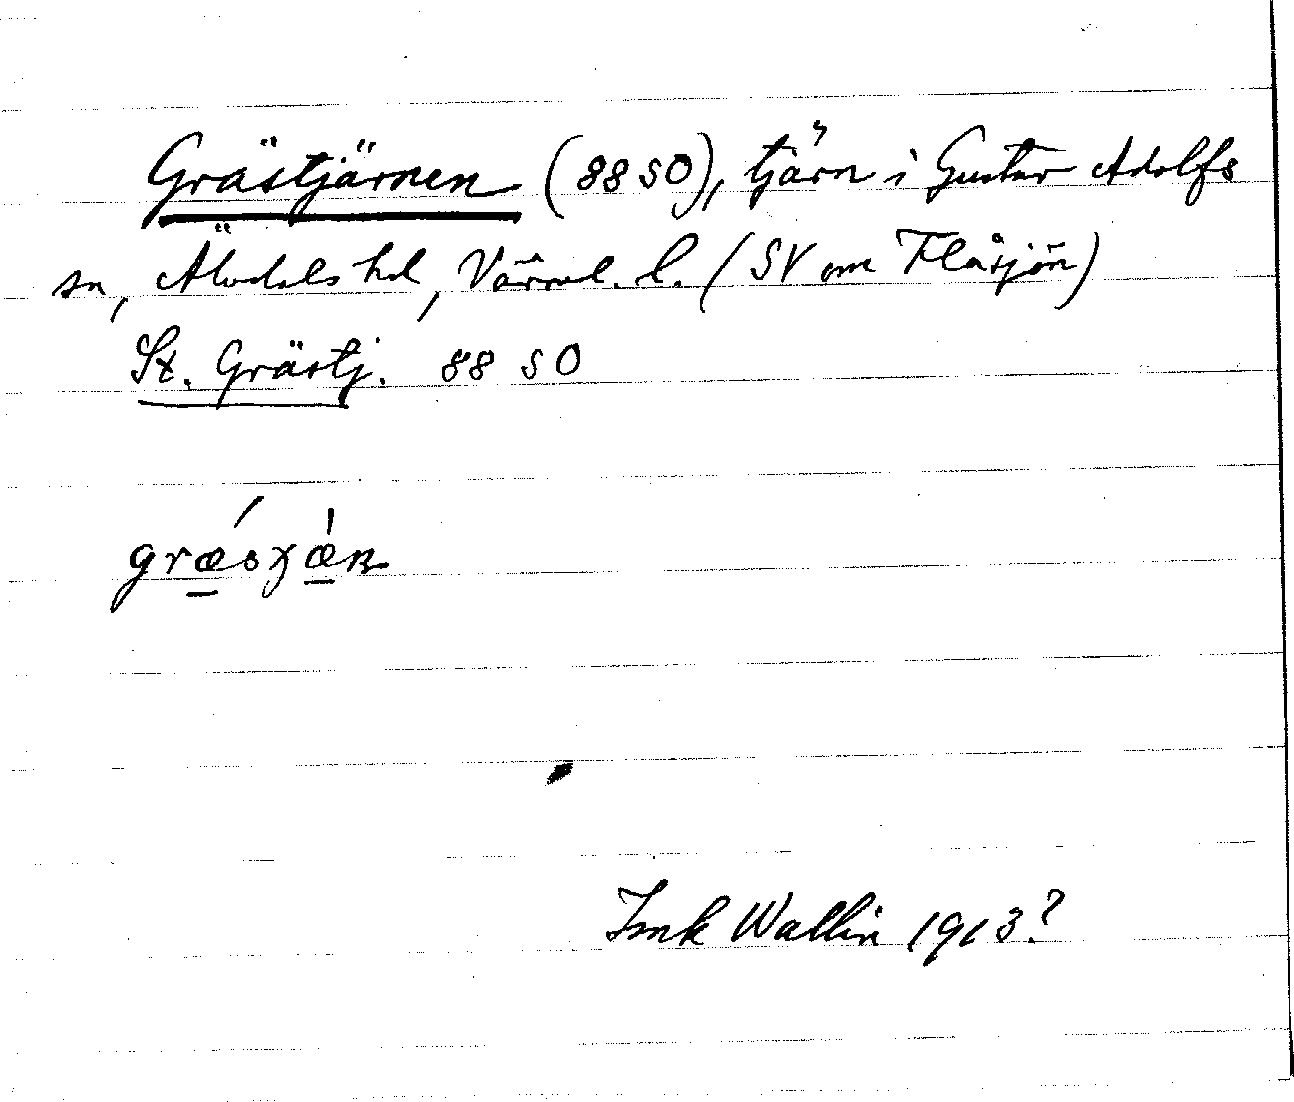 Grästjärnen (88 SO), tjärn i Gustav Adolfs
sn, Älvdals hd, Värml. l. (SV om Flåsjön)
St. Grästj. 88 SO
Ink Wallin 1913?